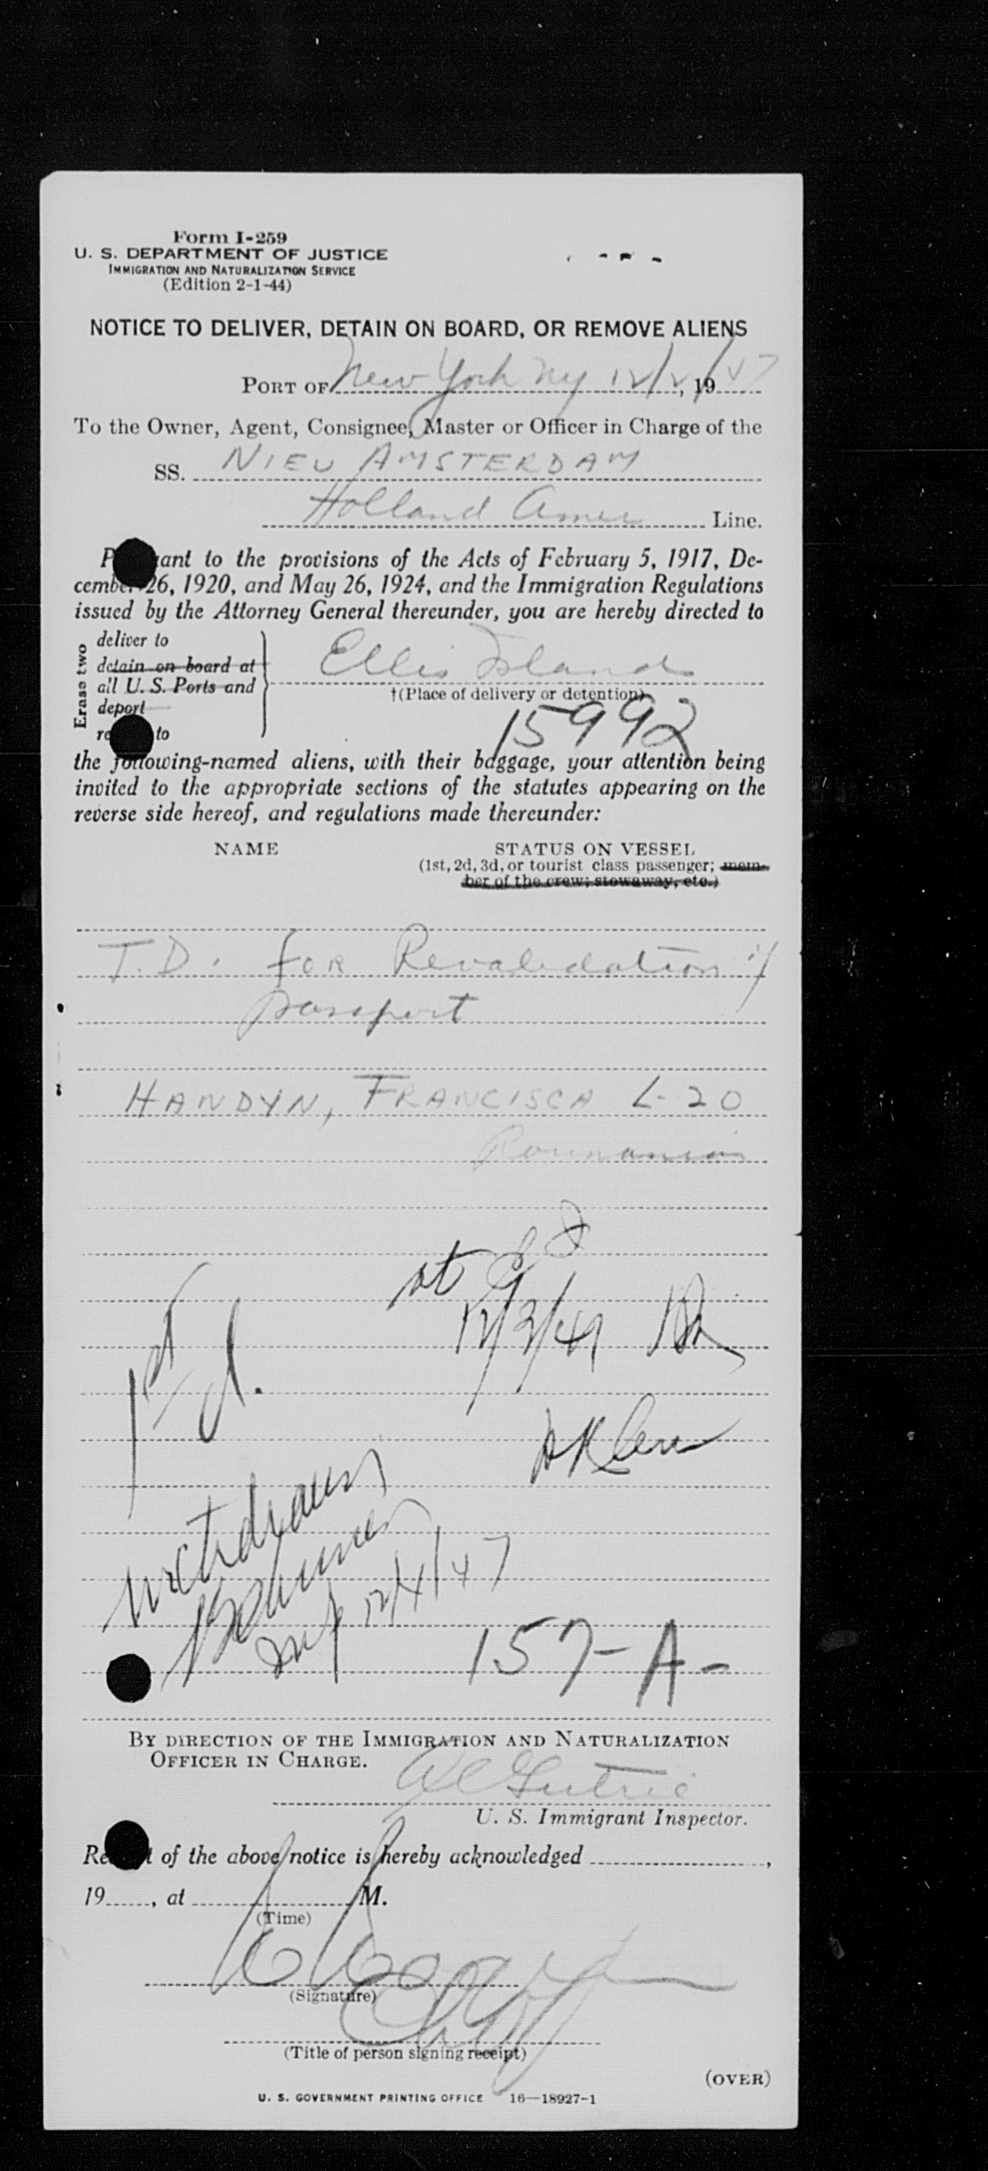 Form I-259
U. S. DEPARTMENT OF JUSTICE
IMMIGRATION AND NATURALIZATION SERVICE
(Edition 2-1-44)
NOTICE TO DELIVER, DETAIN ON BOARD, OR REMOVE ALIENS
PORT OF New York Ny 12/2/, 1947
To the Owner, Agent, Consignee, Master or Officer in Charge of the
SS. NIEU AMSTERDAM
Holland Amer Line.
P ant to the provisions of the Acts of February 5, 1917, De-
cember 26, 1920, and May 26, 1924, and the Immigration Regulations
issued by the Attorney General thereunder, you are hereby directed to
Erase two
deliver to
detain on board at
all U. S. Ports and
deport
re to
Ellis Island
†(Place of delivery or detention)
15992
the following-named aliens, with their baggage, your attention being
invited to the appropriate sections of the statutes appearing on the
reverse side hereof, and regulations made thereunder:
NAME STATUS ON VESSEL
(1st, 2d, 3d, or tourist class passenger; mem-
ber of the crew; stowaway, etc.)
T.D. FOR Revalidation of
passport
HANDYN, FRANCISCA L-20
Roumanian
at E I
12/2/47
1st d.
withdrawn
12/4/47
157-A-
BY DIRECTION OF THE IMMIGRATION AND NATURALIZATION
OFFICER IN CHARGE.
U. S. Immigrant Inspector.
Re t of the above notice is hereby acknowledged ,
19 , at M.
(Time)
(Signature)
(Title of person signing receipt)
(OVER)
U. S. GOVERNMENT PRINTING OFFICE 16—18927-1